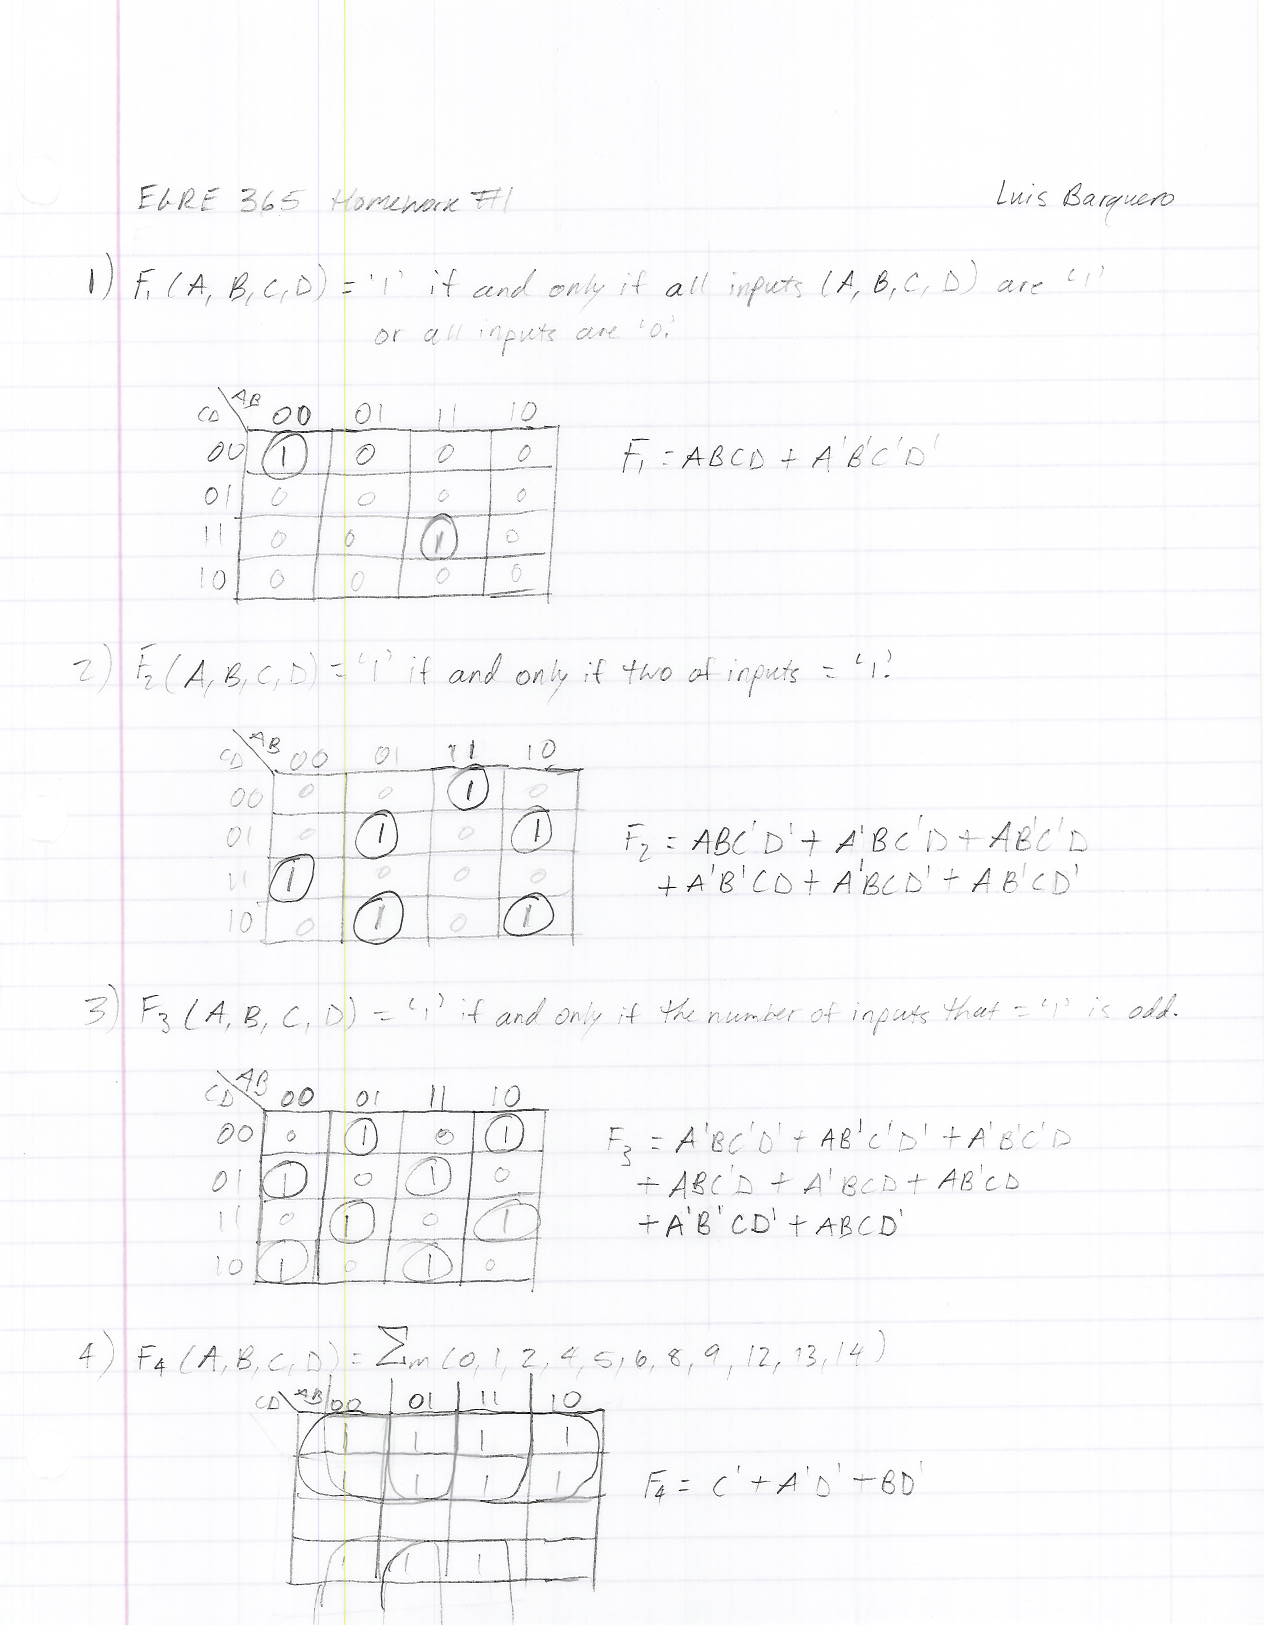 EGRE 365 Homework #1 Luis Barquero
1) F₁ (A, B, C, D) = '1' if and only if all inputs (A, B, C, D) are '1'
or all inputs are '0.'
CD \ AB 00 01 11 10
00 1 0 0 0
01 0 0 0 0
11 0 0 1 0
10 0 0 0 0
F₁ = ABCD + A'B'C'D'
2) F₂ (A, B, C, D) = '1' if and only if two of inputs = '1.'
CD \ AB 00 01 11 10
00 0 0 1 0
01 0 1 0 1
11 1 0 0 0
10 0 1 0 1
F₂ = ABC'D' + A'BC'D + AB'C'D
+ A'B'CD + A'BCD' + AB'CD'
3) F₃ (A, B, C, D) = '1' if and only if the number of inputs that = '1' is odd.
CD \ AB 00 01 11 10
00 0 1 0 1
01 1 0 1 0
11 0 1 0 1
10 1 0 1 0
F₃ = A'BC'D' + AB'C'D' + A'B'C'D
+ ABC'D + A'BCD + AB'CD
+ A'B'CD' + ABCD'
4) F₄ (A, B, C, D) = Σm (0, 1, 2, 4, 5, 6, 8, 9, 12, 13, 14)
CD \ AB 00 01 11 10
1 1 1 1
1 1 1 1
1 1 1
F₄ = C' + A'D' + BD'